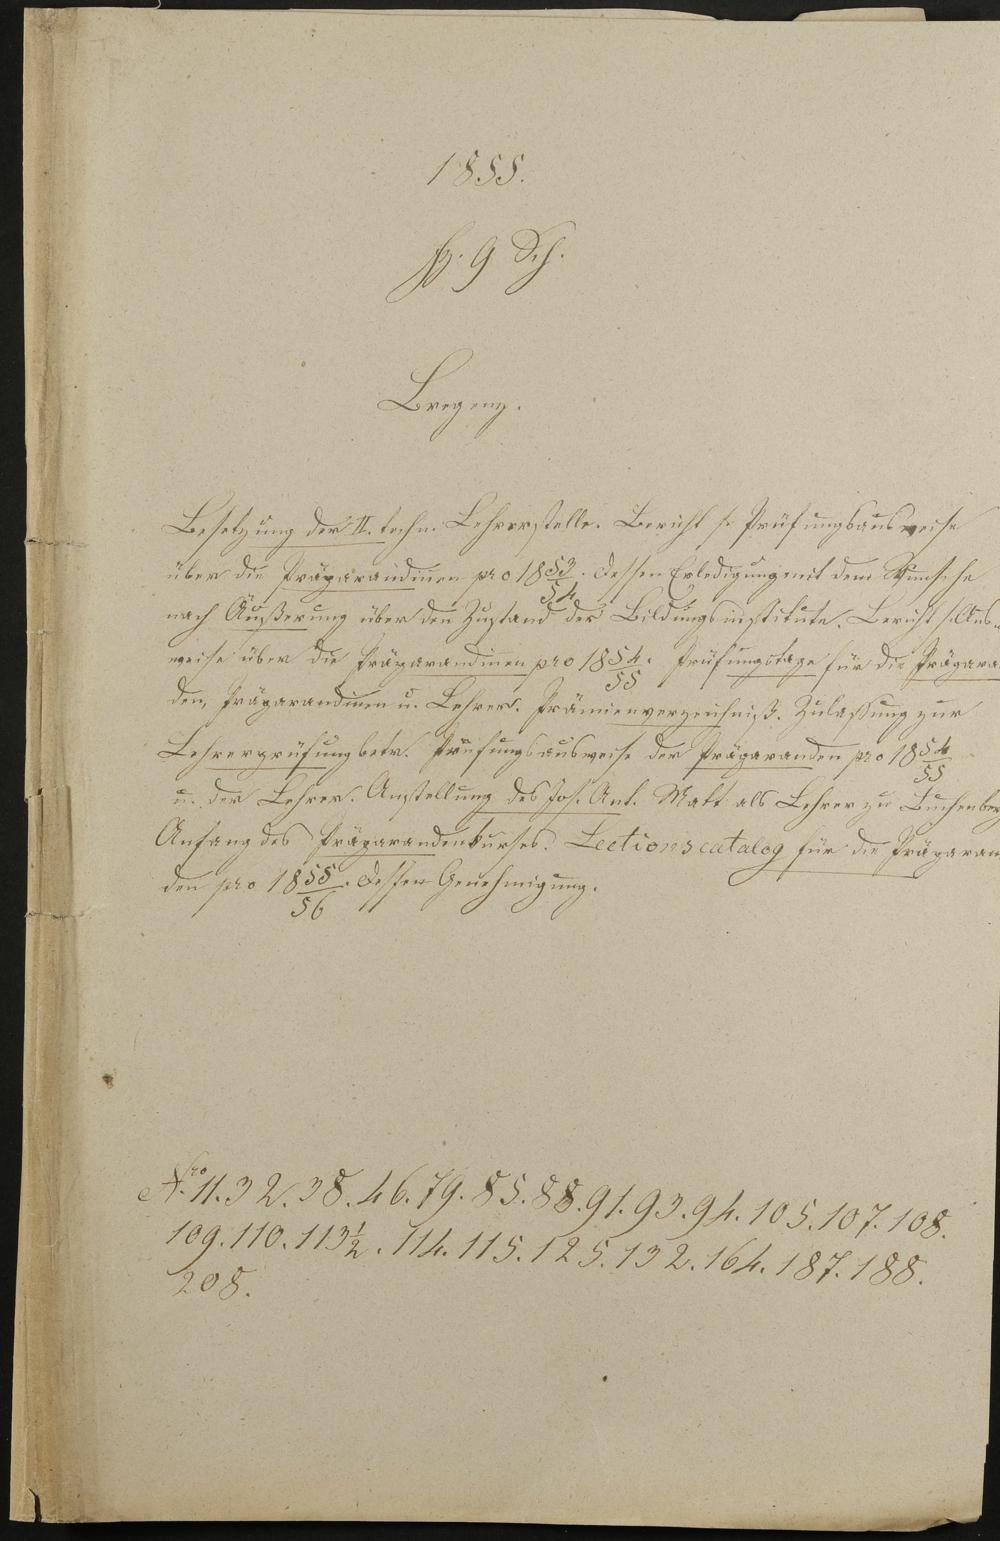 1855.
9 Sch.
Bregenz.
Besetzung der II. techn. Lehrerstelle. Bericht s. Prüfungsausweise
über die Präparandinen pro 1853/54. Dessen Erledigung mit dem Wunsche
nach Äußerung über den Zustand der Bildungsinstitute. Bericht s. Aus-
weise über die Präparandinen pro 1854/55. Prüfungstage für die Präparan
den, Präparandinen u. Lehrer. Prämienverzeichniß. Zulaßung zur
Lehrerprüfung betr. Prüfungsausweise der Präparanden pro 1854/55
u. der Lehrer. Anstellung des Jos. Ant. Matt als Lehrer zu Buchenberg
Anfang des Präparandenkurses. Lectionscatalog für die Präparan
den pro 1855/56. Dessen Genehmigung.
Nro 11. 32. 38. 46. 79. 85. 88. 91. 93. 94. 105. 107. 108.
109. 110. 113½. 114. 115. 125. 132. 164. 187. 188.
208.